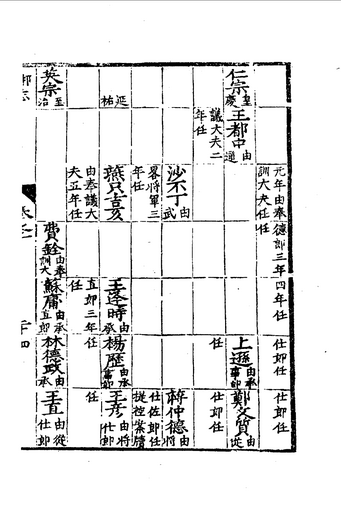 元年由奉德郎三年四年任
訓大夫任任
仕郎任
仕郎任
仁宗皇慶
王都中由通
上遜由承事郎
鄭文質由從
議大夫二年任
任
沙不丁由武
蔣仲德由將
畧將軍三年任
仕佐郎任
提控案牘
延祐
燕只吉亥
王逢時由承
楊歷由承事郎
王彥由將仕郎
由奉議大夫五年任
直郎三年任
任
英宗至治
費銓由奉訓大
蘇庸由承直郎
林德政由承
王直由從仕郎